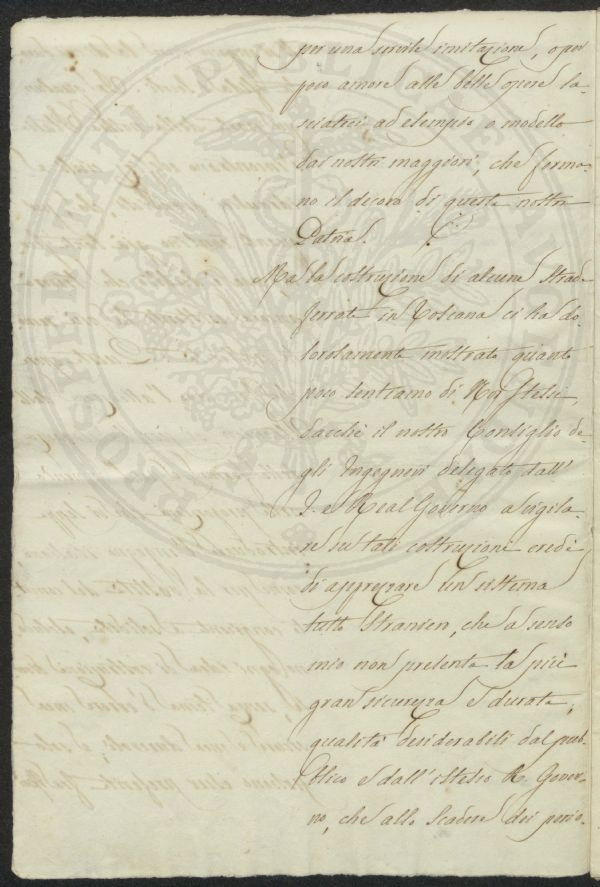 per una servile imitazione, o per
poco amore alle belle opere la-
sciateci ad esempio o modello
dai nostri maggiori, che forma-
no il decoro di questa nostra
Patria.
Ma la costruzione di alcune strade
ferrate in Toscana ci ha do-
lorosamente mostrato quanto
poco sentiamo di Noi Stessi,
dacchè il nostro Consiglio de-
gli Ingegneri delegato dall'
I. e Real Governo a vigila-
re su tali costruzioni credè
di apprezzare un sistema
tutto straniero, che a senso
mio non presenta la più
gran sicurezza e durata,
qualità desiderabili dal pub-
blico e dall'istesso R. Gover-
no, che allo scadere dei perio-
PROSPERITATI PUBLICAE